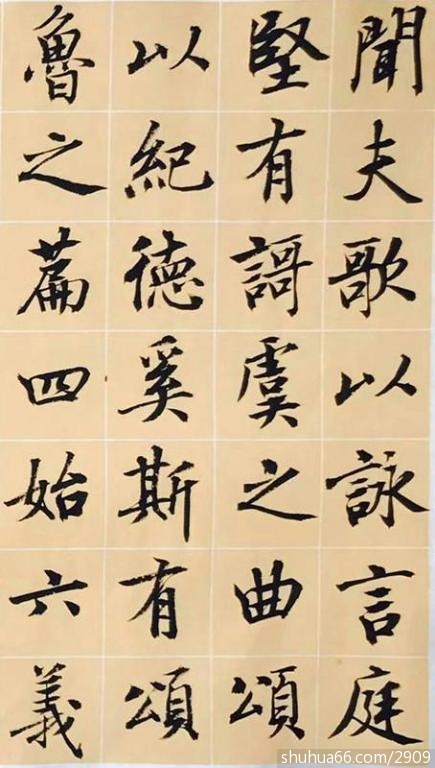 聞夫歌以詠言庭
堅有謌虞之曲頌
以紀德奚斯有頌
魯之篇四始六義
shuhua66.com/2909